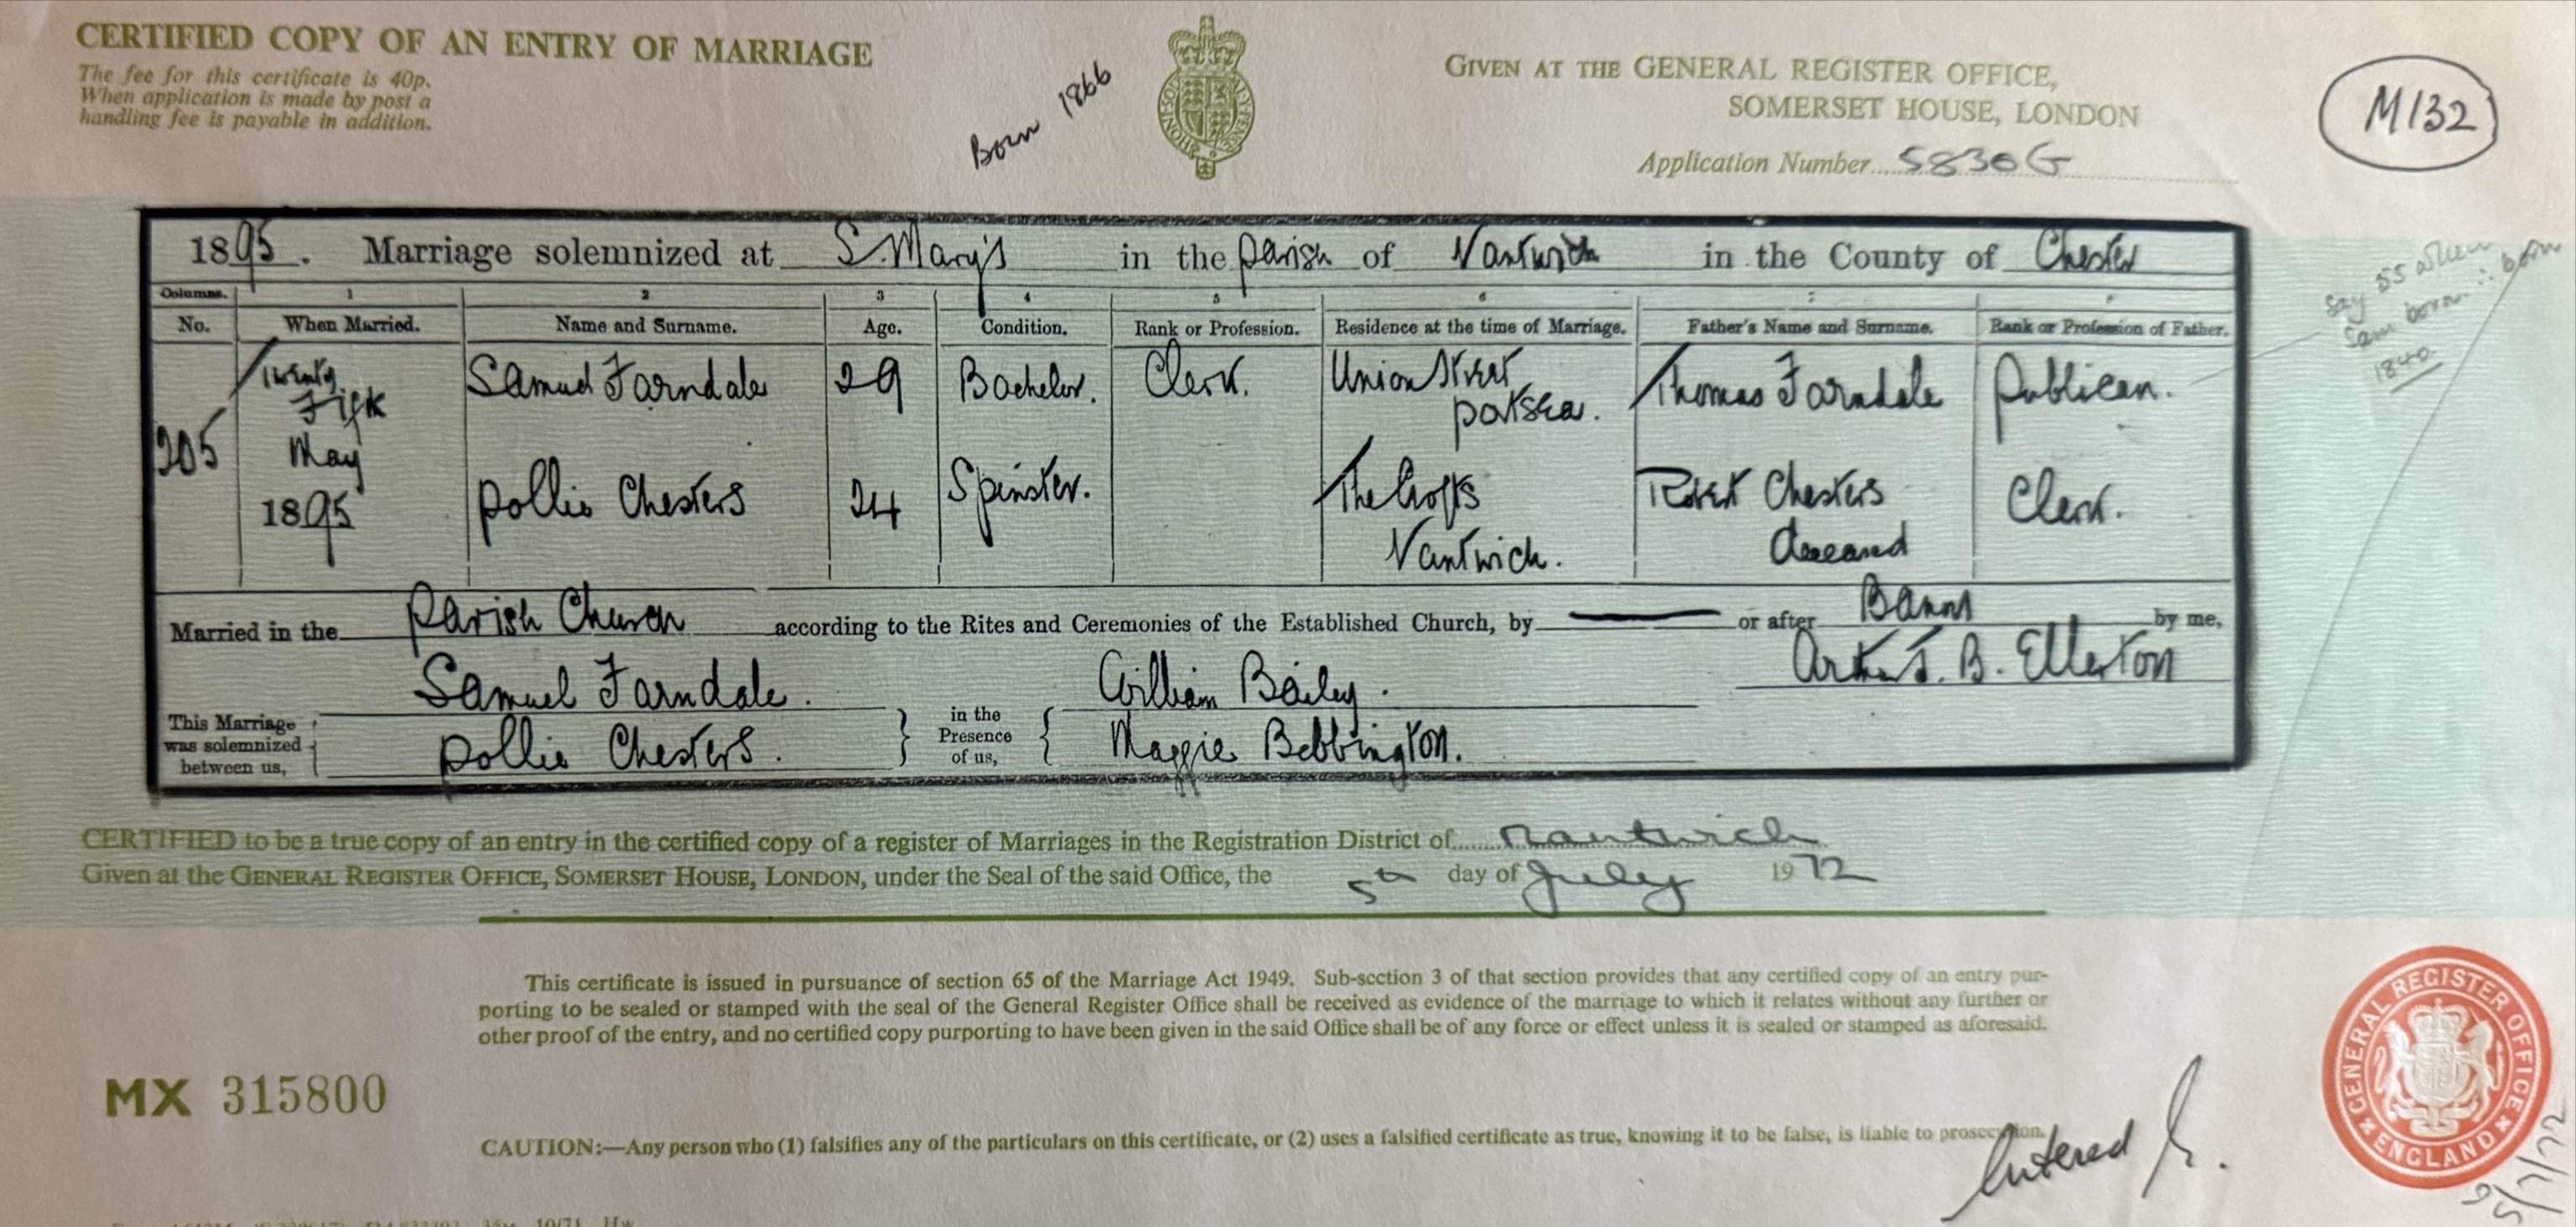 CERTIFIED COPY OF AN ENTRY OF MARRIAGE
The fee for this certificate is 40p.
When application is made by post a
handling fee is payable in addition.
Born 1866
GIVEN AT THE GENERAL REGISTER OFFICE,
SOMERSET HOUSE, LONDON
Application Number 5830G
M132
1895. Marriage solemnized at S. Mary's in the Parish of Nantwich in the County of Chester
Columns. 1 2 3 4 5 6 7
No. When Married. Name and Surname. Age. Condition. Rank or Profession. Residence at the time of Marriage. Father's Name and Surname. Rank or Profession of Father.
205 Twenty Fifth May 1895
Samuel Farndale 29 Bachelor. Clerk. Union Street Portsea. Thomas Farndale Publican.
Pollie Chesters 24 Spinster. The Crofts Nantwich. Robert Chesters deceased Clerk.
say 25 when
Sam born ∴ born
1840
Married in the Parish Church according to the Rites and Ceremonies of the Established Church, by or after Banns by me,
B. Ellerton
This Marriage was solemnized between us,
Samuel Farndale.
Pollie Chesters.
in the Presence of us,
William Bailey.
Maggie Bebbington.
CERTIFIED to be a true copy of an entry in the certified copy of a register of Marriages in the Registration District of Nantwich
Given at the GENERAL REGISTER OFFICE, SOMERSET HOUSE, LONDON, under the Seal of the said Office, the 5th day of July 1972
This certificate is issued in pursuance of section 65 of the Marriage Act 1949. Sub-section 3 of that section provides that any certified copy of an entry pur-
porting to be sealed or stamped with the seal of the General Register Office shall be received as evidence of the marriage to which it relates without any further or
other proof of the entry, and no certified copy purporting to have been given in the said Office shall be of any force or effect unless it is sealed or stamped as aforesaid.
MX 315800
CAUTION:—Any person who (1) falsifies any of the particulars on this certificate, or (2) uses a falsified certificate as true, knowing it to be false, is liable to prosecution.
GENERAL REGISTER OFFICE
ENGLAND
Entered